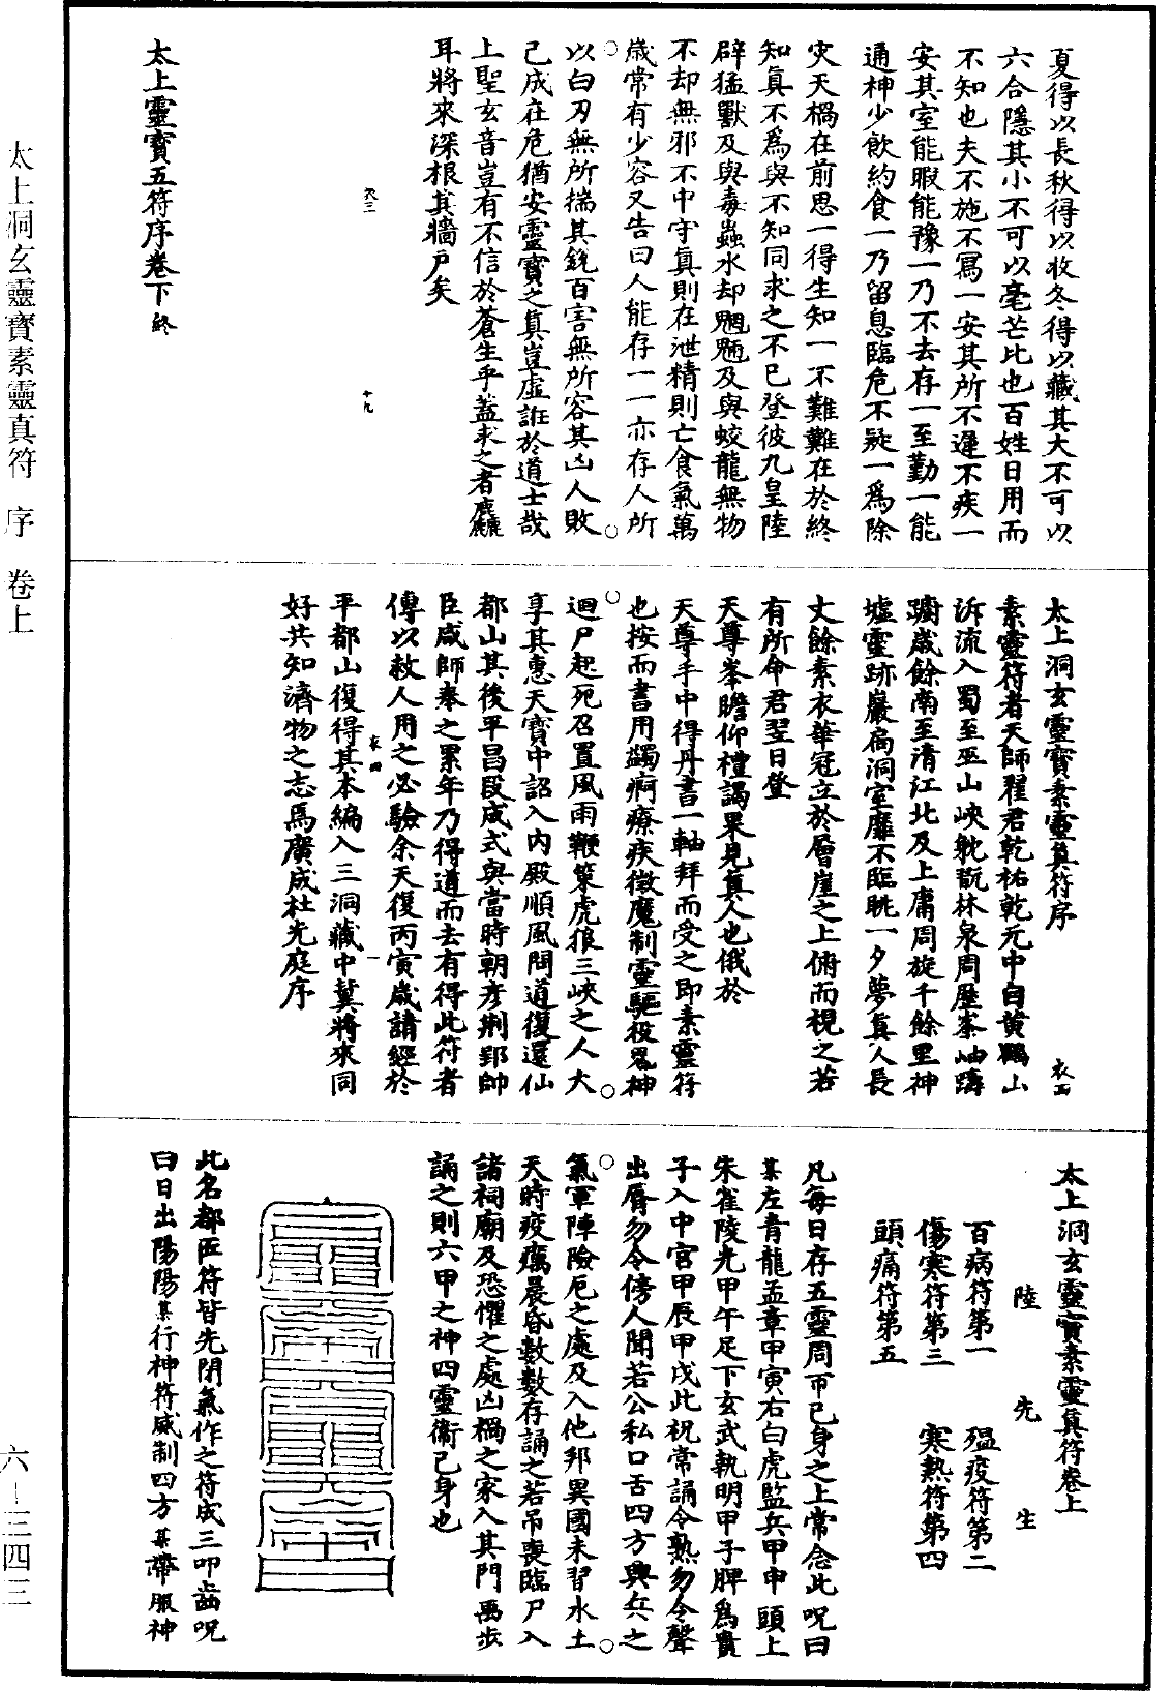 夏得以長秋得以收冬得以藏其大不可以
六合隱其小不可以毫芒比也百姓日用而
不知也夫不施不寫一安其所不遲不疾一
安其室能暇能豫一乃不去存一至勤一能
通神少飲約食一乃留息臨危不疑一爲除
灾天禍在前思一得生知一不難難在於終
知真不爲與不知同求之不已登彼九皇陸
辟猛獸及與毒蟲水却魍魎及與蛟龍無物
不却無邪不中守真則在泄精則亡食氣萬
歲常有少容又告曰人能存一一亦存人所
以白刃無所揣其銳百害無所容其凶人敗
己成在危猶安靈寶之真豈虛誑於道士哉
上聖玄音豈有不信於蒼生乎蓋求之者麁
耳將來深根其牆戶矣
衣三
十九
太上靈寶五符序卷下 終
太上洞玄靈寶素靈真符序
衣四
素靈符者天師翟君乾祐乾元中自黃鶴山
泝流入蜀至巫山峽躭翫林泉周歷峯岫躊
躕歲餘南至清江北及上庸周旋千餘里神
墟靈跡巖扃洞室靡不臨眺一夕夢真人長
丈餘素衣華冠立於層崖之上俯而視之若
有所命君翌日登
天尊峯瞻仰禮謁果見真人也俄於
天尊手中得丹書一軸拜而受之即素靈符
也按而書用蠲痾療疾徵魔制靈驅役鬼神
迴尸起死召置風雨鞭策虎狼三峽之人大
享其惠天寶中詔入內殿順風問道復還仙
都山其後平昌段成式與當時朝彥荆郢帥
臣咸師奉之累年乃得道而去有得此符者
傳以救人用之必驗余天復丙寅歲請經於
衣四
一
平都山復得其本編入三洞藏中冀將來同
好共知濟物之志焉廣成杜光庭序
太上洞玄靈寶素靈真符卷上
陸先生
百病符第一 瘟疫符第二
傷寒符第三 寒熱符第四
頭痛符第五
凡每日存五靈周帀己身之上常念此呪曰
某左青龍孟章甲寅右白虎監兵甲申頭上
朱雀陵光甲午足下玄武執明甲子脾爲貴
子入中宮甲辰甲戌此祝常誦令熟勿令聲
出脣勿令傍人聞若公私口舌四方興兵之
氣軍陣險厄之處及入他邦異國未習水土
天時疫癘晨昏數數存誦之若弔喪臨尸入
諸祠廟及恐懼之處凶禍之家入其門禹步
誦之則六甲之神四靈衞己身也
此名都匠符皆先閉氣作之符成三叩齒呪
曰日出陽陽某行神符威制四方某帶服神
太上洞玄靈寶素靈真符 序 卷上
六—三四三